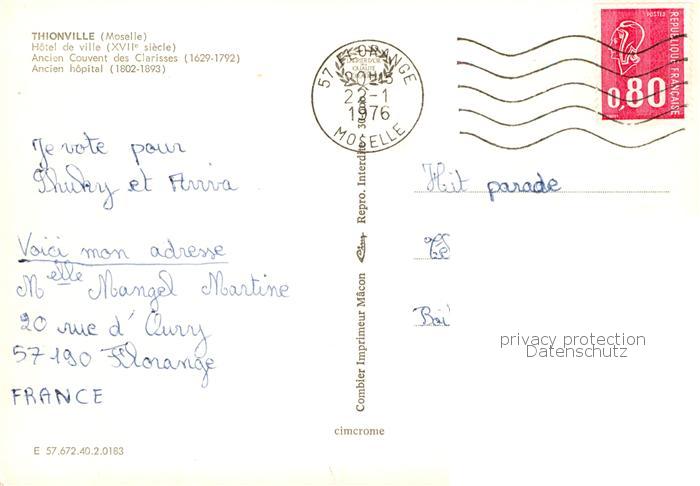 THIONVILLE (Moselle)
Hôtel de ville (XVIIe siècle)
Ancien Couvent des Clarisses (1629-1792)
Ancien hôpital (1802-1893)
Je vote pour
Thuky et Arriva
Voici mon adresse
Melle Mangel Martine
20 rue d'Oury
57190 Florange
FRANCE
E 57.672.40.2.0183
Combier Imprimeur Mâcon
Repro. Interdite
cimcrome
57 FLORANGE
20H45
22-1
1976
MOSELLE
POSTES
0,80
RÉPUBLIQUE FRANÇAISE
Hit parade
privacy protection
Datenschutz